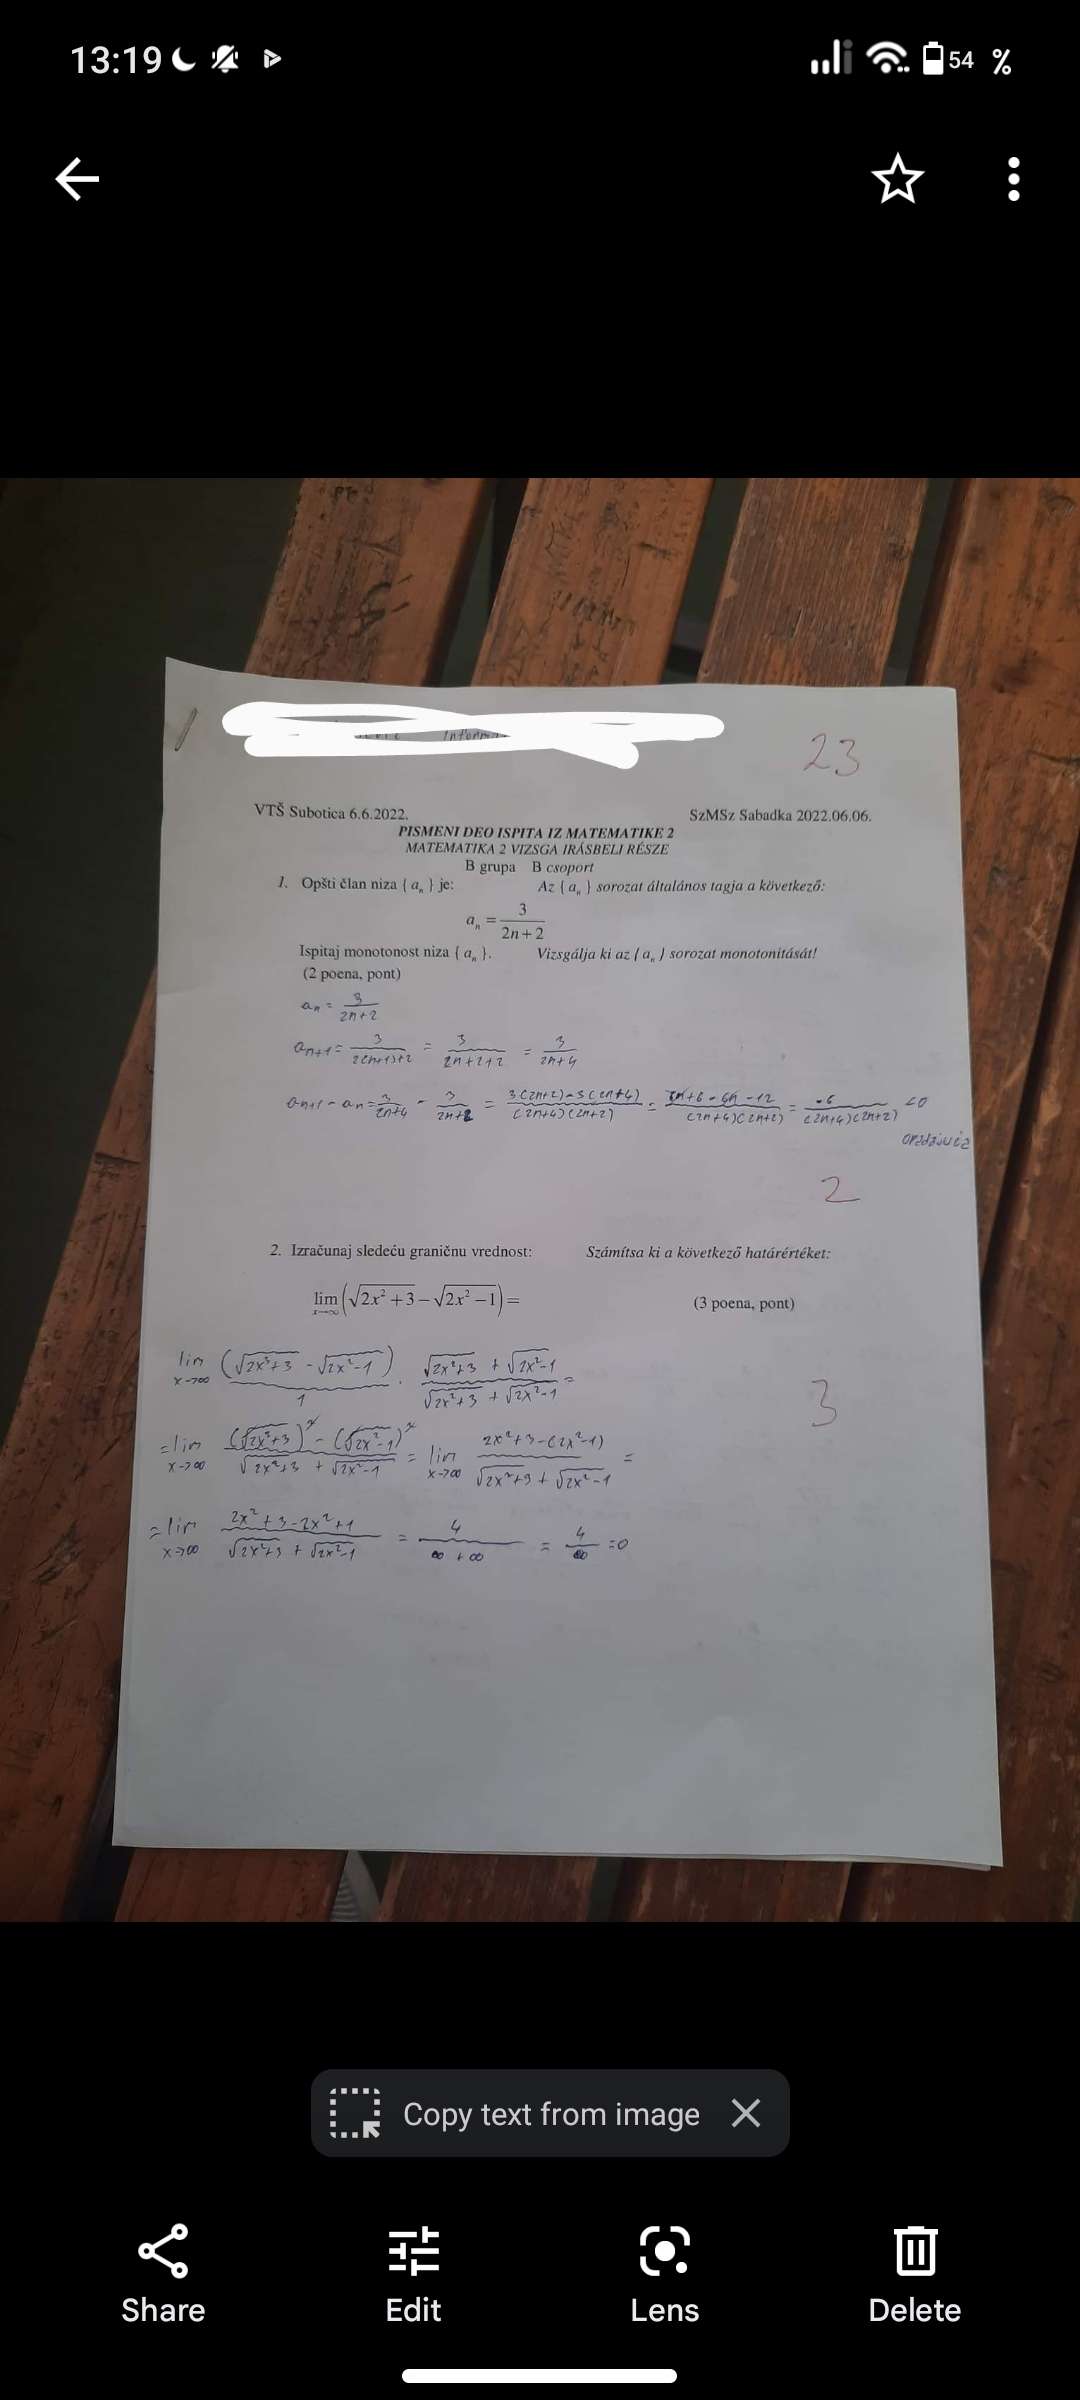 13:19
54 %
23
VTŠ Subotica 6.6.2022. SzMSz Sabadka 2022.06.06.
PISMENI DEO ISPITA IZ MATEMATIKE 2
MATEMATIKA 2 VIZSGA IRÁSBELI RÉSZE
B grupa B csoport
1. Opšti član niza { aₙ } je: Az { aₙ } sorozat általános tagja a következő:
aₙ = 3/(2n+2)
Ispitaj monotonost niza { aₙ }. Vizsgálja ki az { aₙ } sorozat monotonitását!
(2 poena, pont)
aₙ = 3/(2n+2)
aₙ₊₁ = 3/(2(n+1)+2) = 3/(2n+2+2) = 3/(2n+4)
aₙ₊₁ - aₙ = 3/(2n+4) - 3/(2n+2) = (3(2n+2)-3(2n+4))/((2n+4)(2n+2)) = (6n+6-6n-12)/((2n+4)(2n+2)) = -6/((2n+4)(2n+2)) <0
2
2. Izračunaj sledeću graničnu vrednost: Számítsa ki a következő határértéket:
lim x→∞ (√(2x²+3) - √(2x²-1)) = (3 poena, pont)
lim x→∞ (√(2x²+3) - √(2x²-1))/1 · (√(2x²+3) + √(2x²-1))/(√(2x²+3) + √(2x²-1)) =
= lim x→∞ ((√(2x²+3))² - (√(2x²-1))²)/(√(2x²+3) + √(2x²-1)) = lim x→∞ (2x²+3-(2x²-1))/(√(2x²+3) + √(2x²-1)) =
3
= lim x→∞ (2x²+3-2x²+1)/(√(2x²+3) + √(2x²-1)) = 4/(∞+∞) = 4/∞ =0
Copy text from image
Share Edit Lens Delete